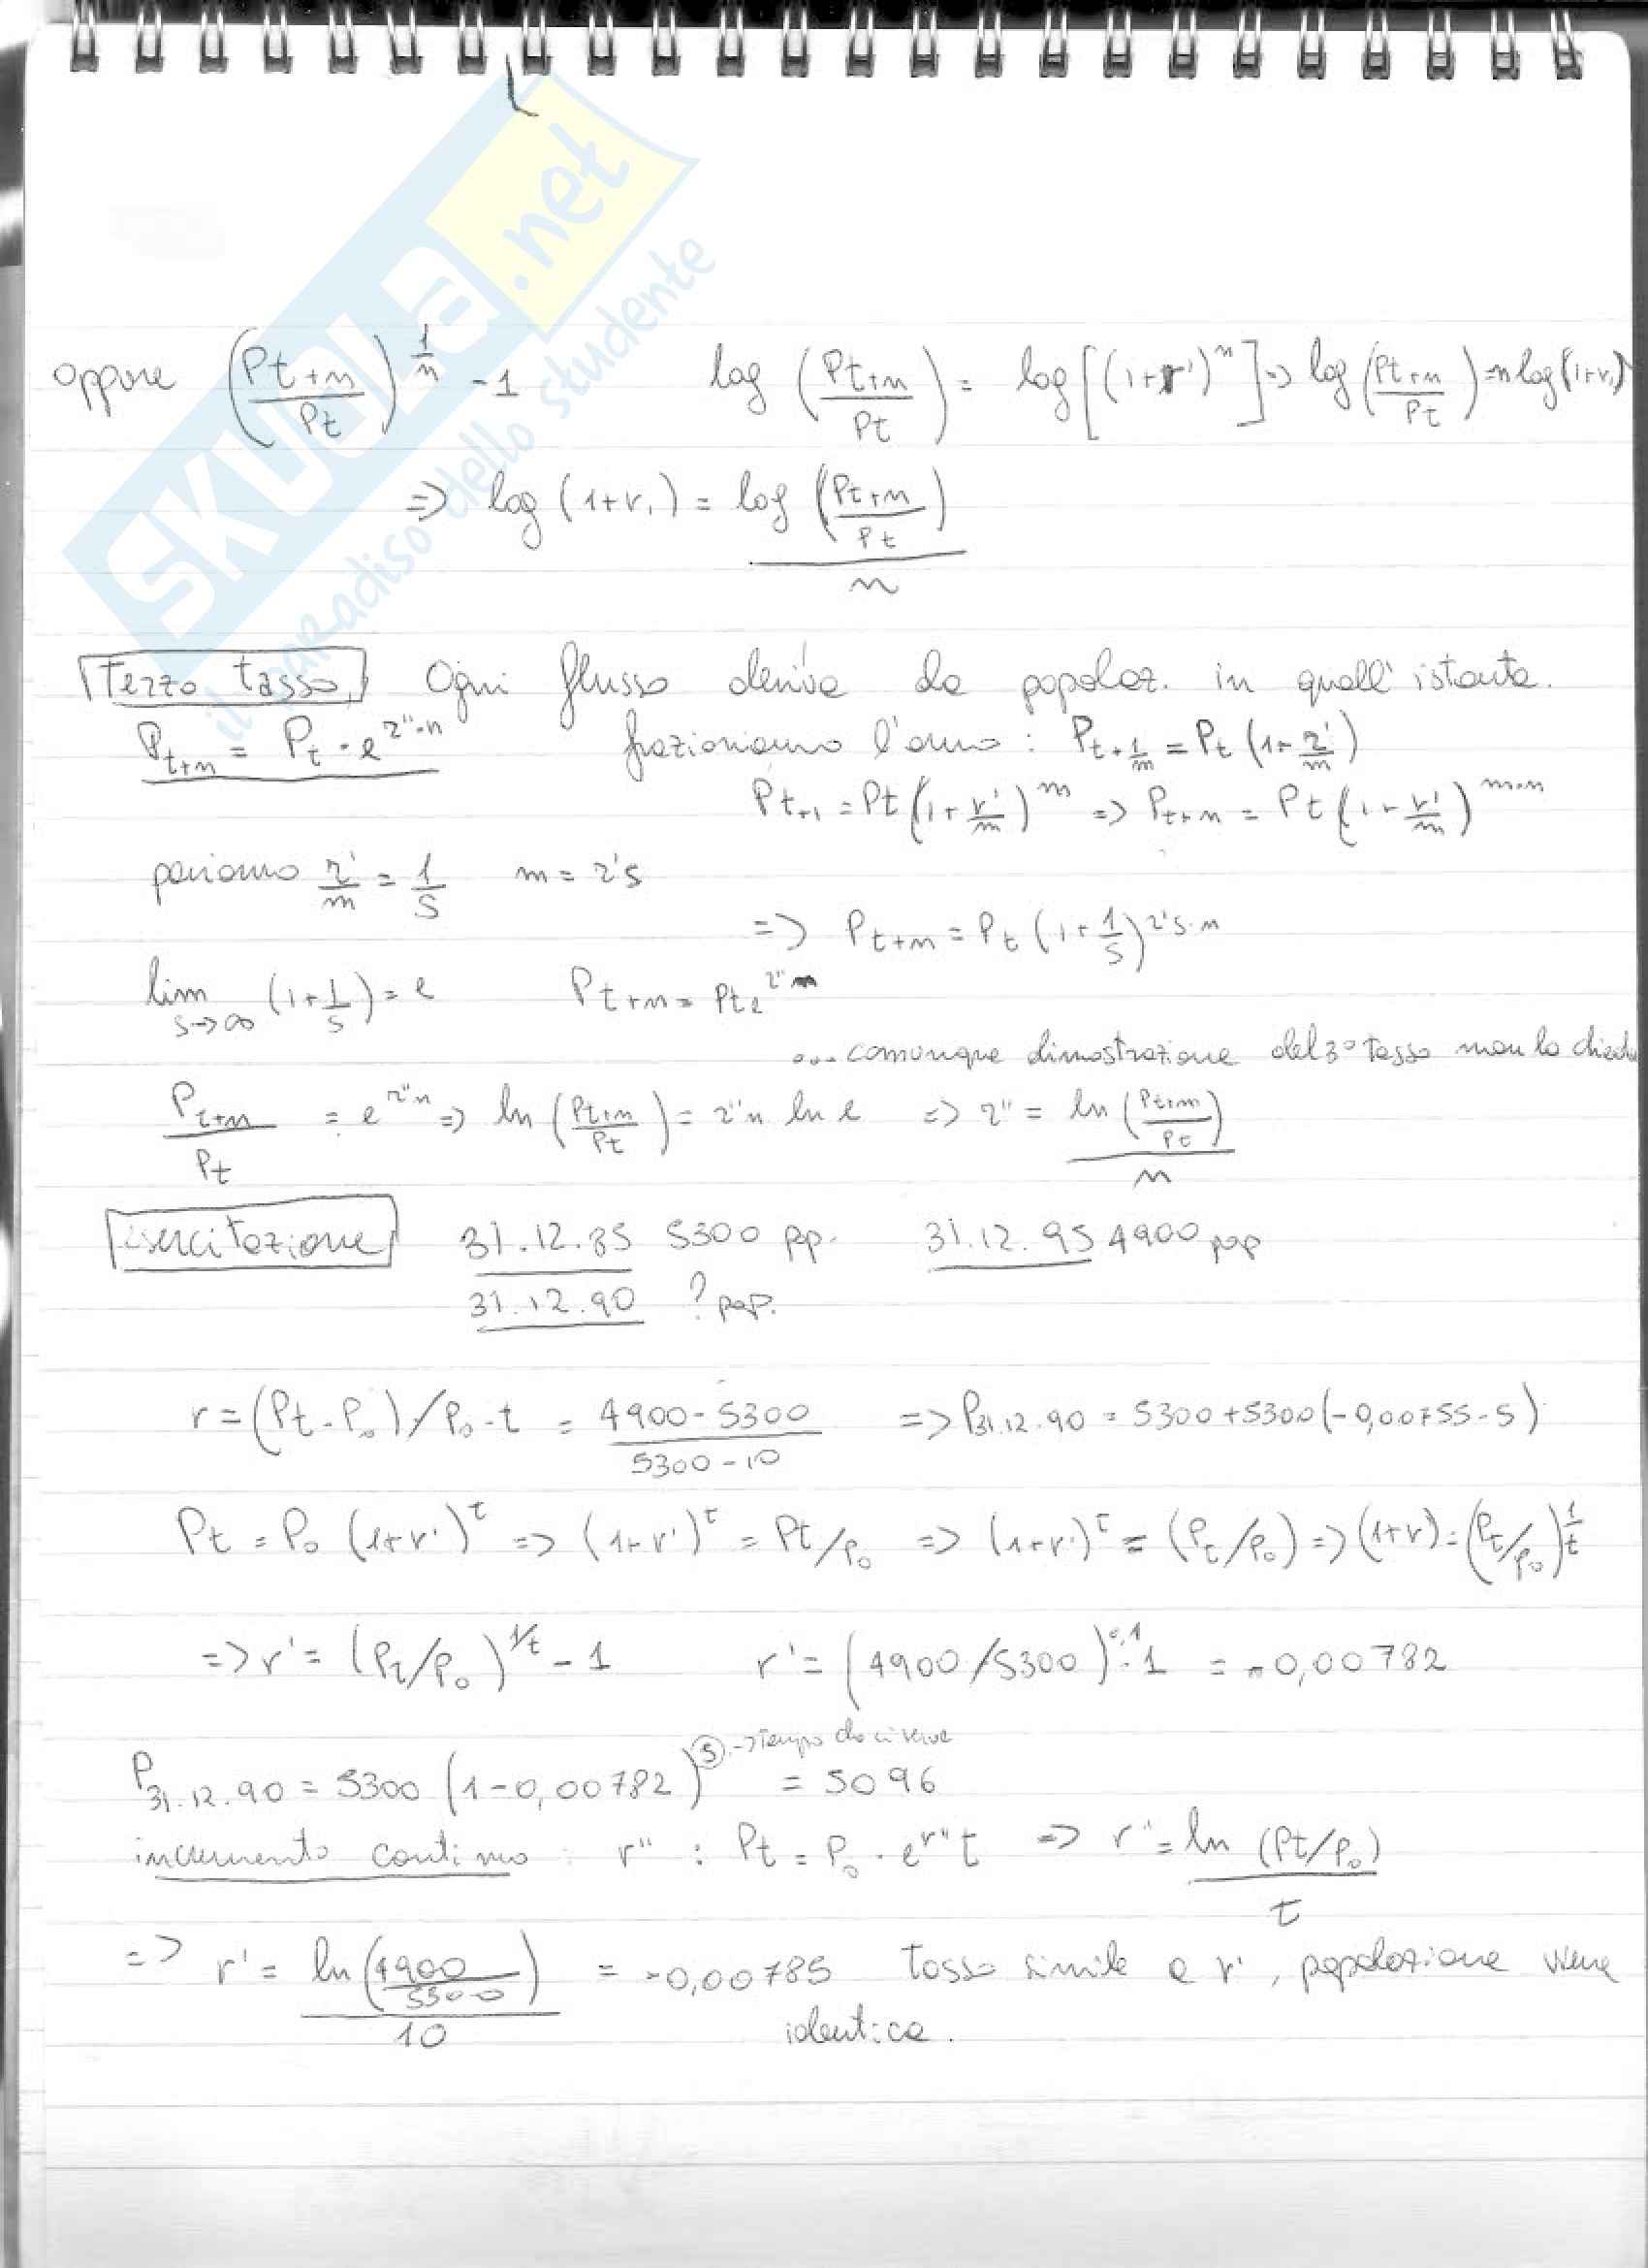 SKUOLA.net
il paradiso dello studente
oppure (Pt+n/Pt)^(1/n) - 1    log (Pt+n/Pt) = log [(1+r')^n] => log (Pt+n/Pt) = n log (1+r')
=> log (1+r') = log (Pt+n/Pt) / n
Terzo tasso Ogni flusso deriva da popolaz. in quell'istante.
Pt+n = Pt · e^(r''·n)    frazioniamo l'anno : Pt+1/m = Pt (1+ r'/m)
Pt+1 = Pt (1+ r'/m)^m => Pt+n = Pt (1+ r'/m)^(m·n)
poniamo r'/m = 1/S    m = r's
=> Pt+n = Pt (1+ 1/S)^(r's·n)
lim s->∞ (1+ 1/s) = e    Pt+n = Pt e^(r''n)
... comunque dimostrazione del 3° tasso non la
Pt+n/Pt = e^(r''n) => ln (Pt+n/Pt) = r''n ln e => r'' = ln (Pt+n/Pt) / n
Esercitazione 31.12.85 5300 pp. 31.12.95 4900 pop
31.12.90 ? pop.
r = (Pt - P0)/P0 · t = 4900 - 5300 / 5300 - 10 => P31.12.90 = 5300 + 5300 (-0,00755 · 5)
Pt = P0 (1+r')^t => (1+r')^t = Pt/P0 => (1+r')^t = (Pt/P0) => (1+r) = (Pt/P0)^(1/t)
=> r' = (Pt/P0)^(1/t) - 1    r' = (4900/5300)^0,1 - 1 = -0,00782
P31.12.90 = 5300 (1-0,00782)^5 -> Tempo che ci serve = 5096
incremento continuo : r'' : Pt = P0 · e^(r'' t) => r'' = ln (Pt/P0) / t
=> r' = ln (4900/5300) / 10 = -0,00785 tasso simile a r', popolazione viene
identica.